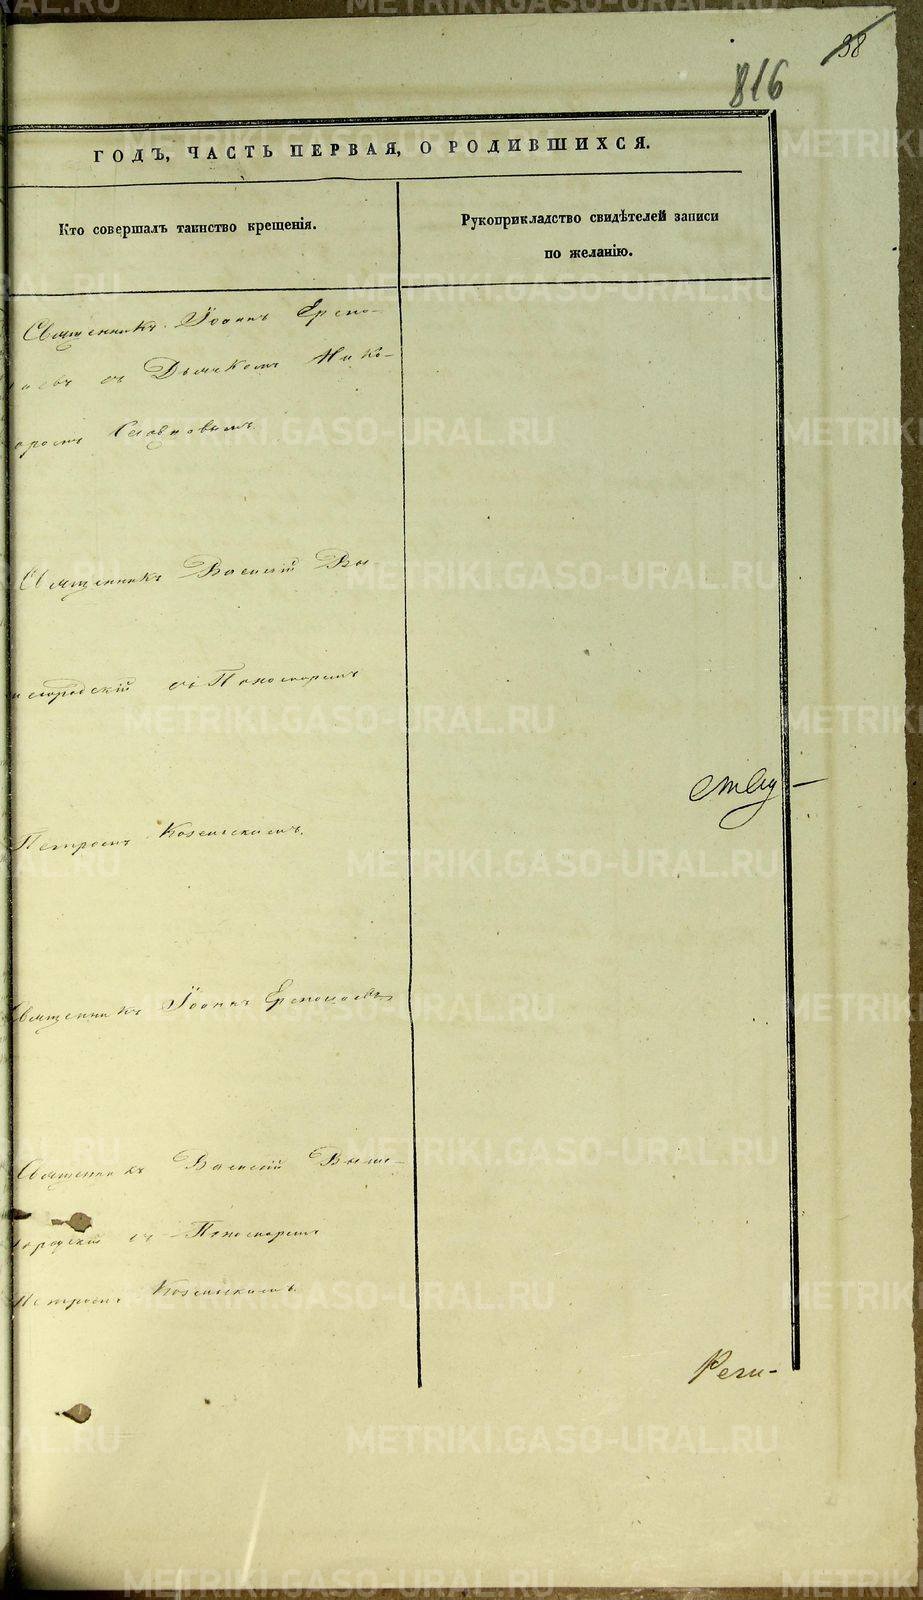 98
816
ГОДЪ, ЧАСТЬ ПЕРВАЯ, О РОДИВШИХСЯ.
Кто совершалъ таинство крещенія.
Рукоприкладство свидѣтелей записи
по желанію.
Священникъ Іоаннъ Ермо-
лаевъ съ Дьячкомъ Ника-
Священникъ Василій Вы
городскій съ Пономаремъ
Петромъ
Священникъ Іоаннъ Ермолаевъ
Священникъ Василій Выш-
городскій съ Пономаремъ
Петромъ
METRIKI.GASO-URAL.RU